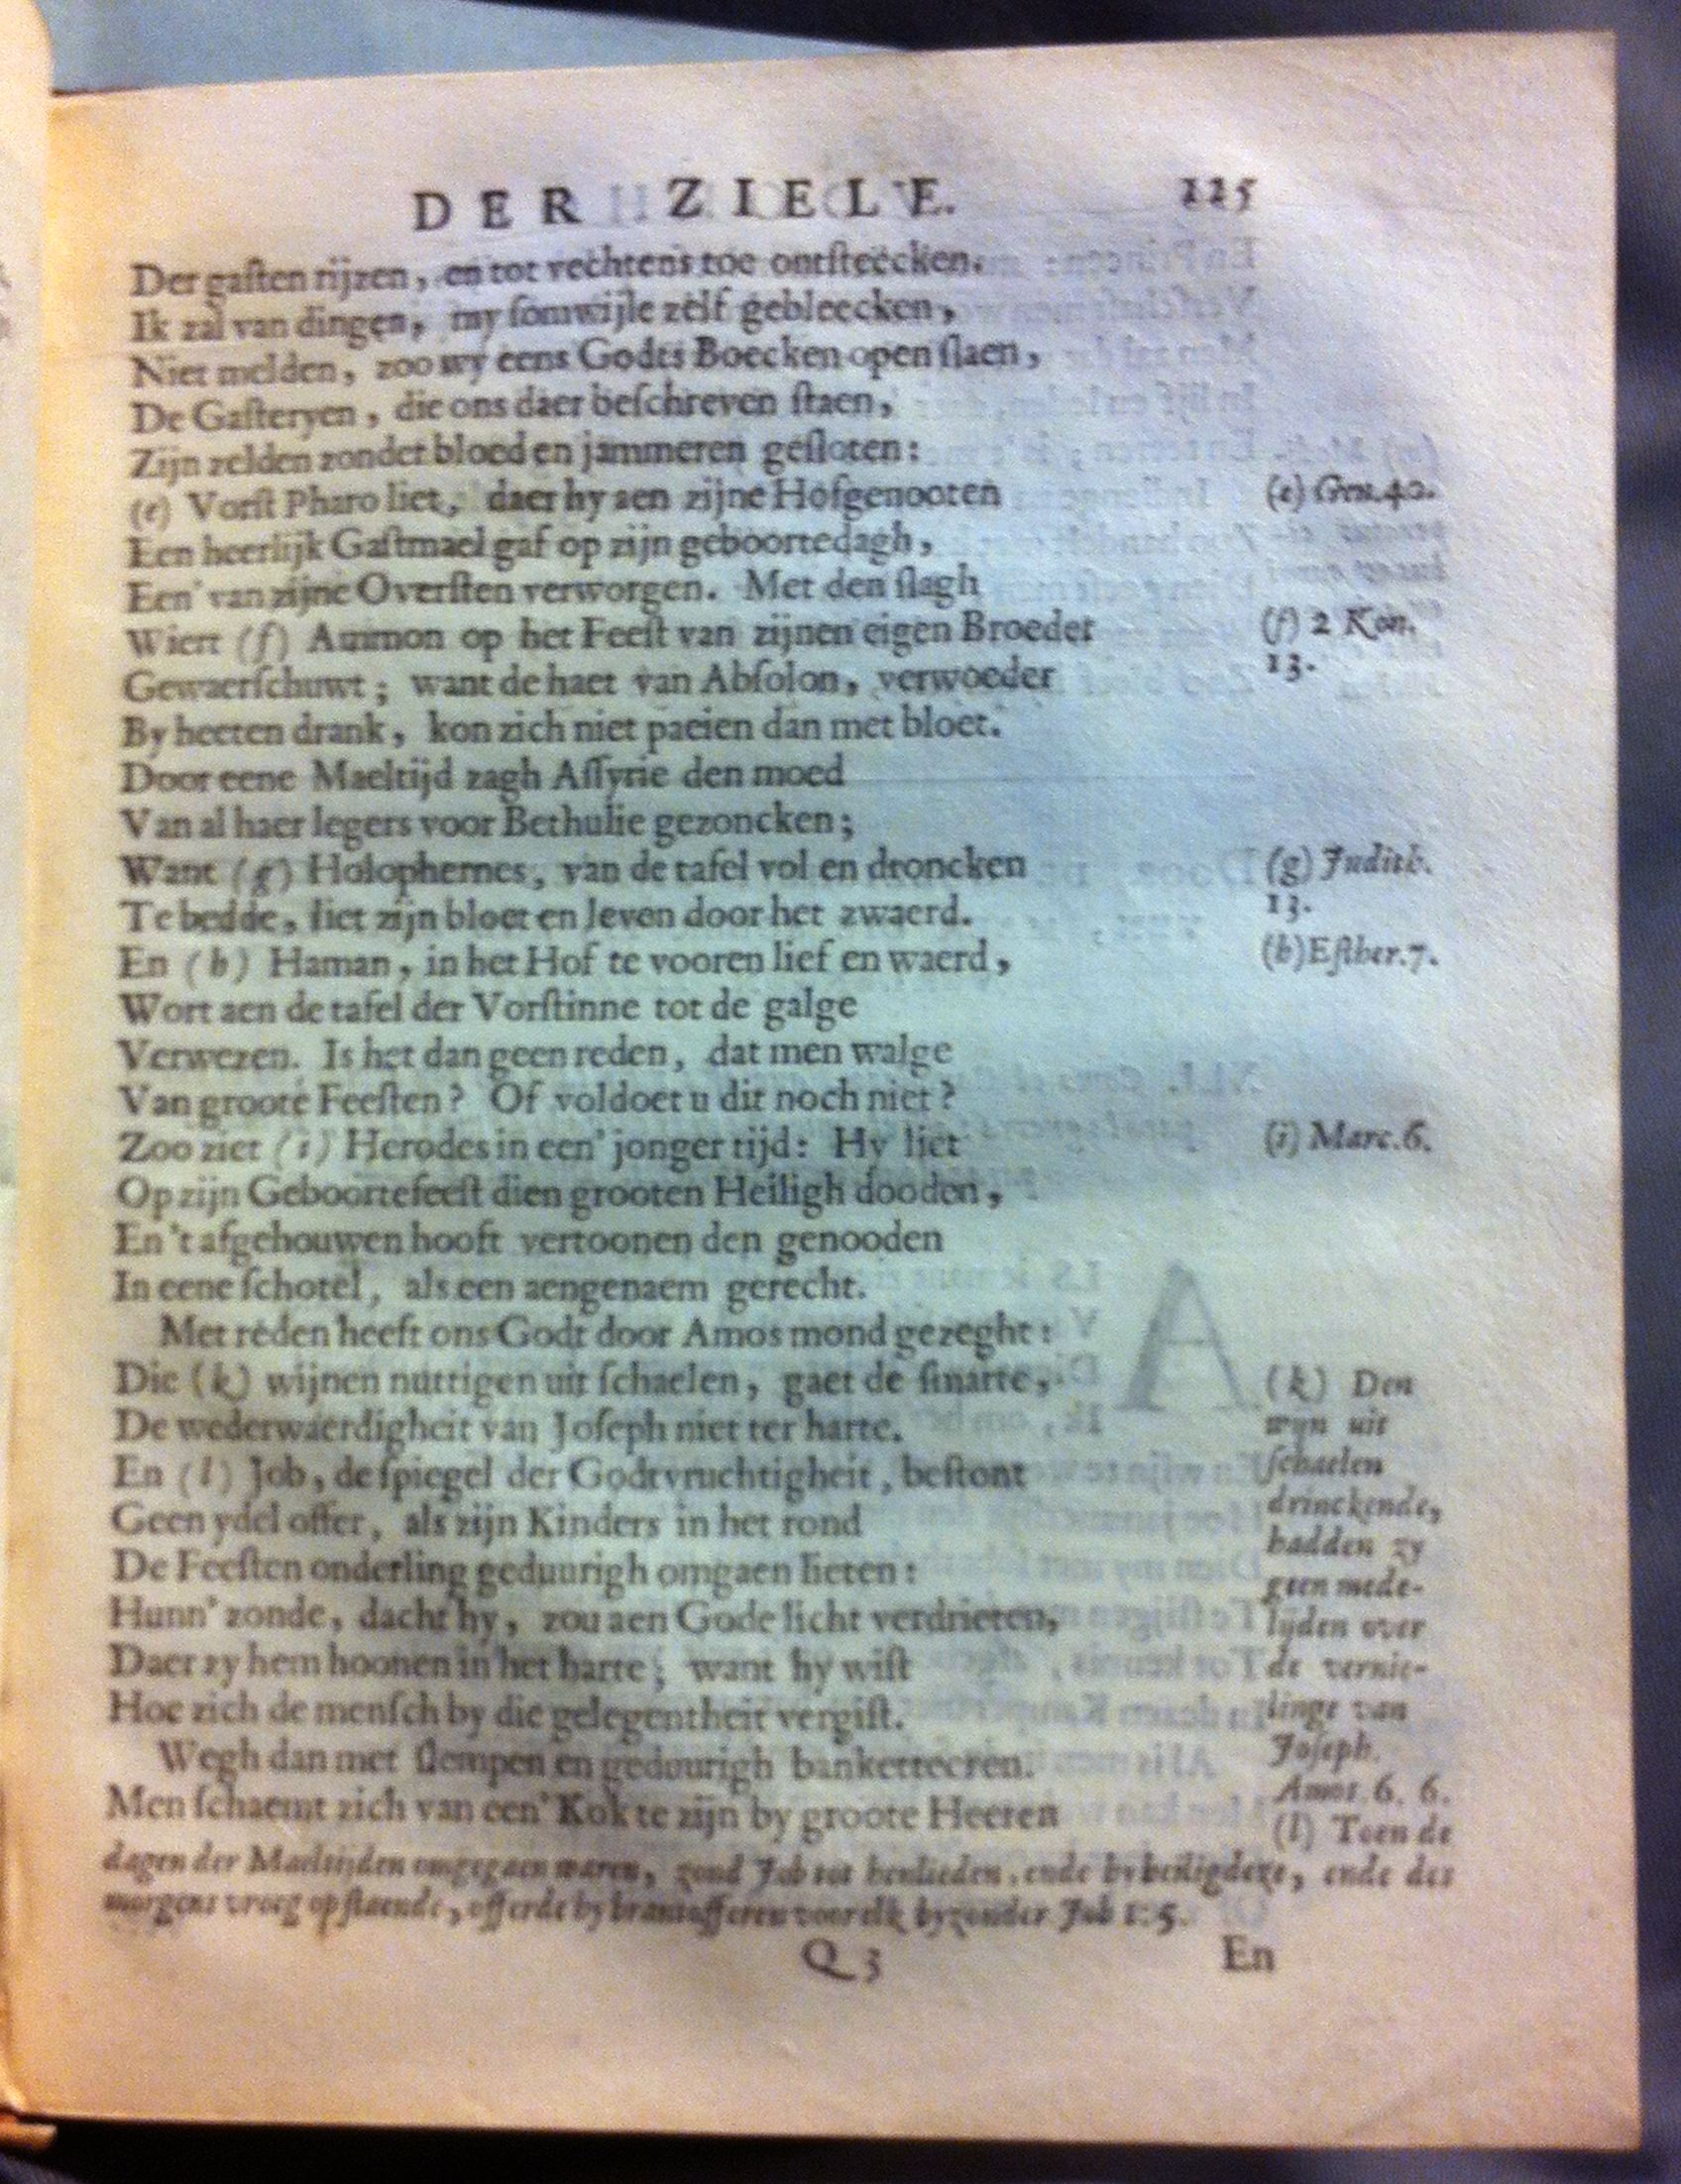 DER ZIELE. 125
Der gaſten rijzen, en tot vechtens toe ontſteecken.
Ik zal van dingen, my ſomwijle zelf gebleecken,
Niet melden, zoo wy eens Godts Boecken open ſlaen,
De Gaſteryen, die ons daer beſchreven ſtaen,
Zijn zelden zonder bloed en jammeren geſloten:
(e) Vorſt Pharo liet, daer hy aen zijne Hofgenooten
(e) Gen. 40.
Een heerlijk Gaſtmael gaf op zijn geboortedagh,
Een' van zijne Overſten verworgen. Met den ſlagh
Wiert (f) Ammon op het Feeſt van zijnen eigen Broeder
(f) 2 Kon.
13.
Gewaerſchuwt; want de haet van Abſolon, verwoeder
By heeten drank, kon zich niet paeien dan met bloet.
Door eene Maeltijd zagh Aſſyrie den moed
Van al haer legers voor Bethulie gezoncken;
Want (g) Holophernes, van de tafel vol en droncken
(g) Judith.
13.
Te bedde, liet zijn bloet en leven door het zwaerd.
En (h) Haman, in het Hof te vooren lief en waerd,
(h) Eſther. 7.
Wort aen de tafel der Vorſtinne tot de galge
Verwezen. Is het dan geen reden, dat men walge
Van groote Feeſten? Of voldoet u dit noch niet?
Zoo ziet (i) Herodes in een' jonger tijd: Hy liet
(i) Marc. 6.
Op zijn Geboortefeeſt dien grooten Heiligh dooden,
En 't afgehouwen hooft vertoonen den genooden
In eene ſchotel, als een aengenaem gerecht.
Met reden heeft ons Godt door Amos mond gezeght:
Die (k) wijnen nuttigen uit ſchaelen, gaet de ſmarte,
De wederwaerdigheit van Joſeph niet ter harte.
En (l) Job, de ſpiegel der Godtvruchtigheit, beſtont
Geen ydel offer, als zijn Kinders in het rond
De Feeſten onderling geduurigh omgaen lieten:
Hunn' zonde, dacht hy, zou aen Gode licht verdrieten,
Daer zy hem hoonen in het harte; want hy wiſt
Hoe zich de menſch by die gelegentheit vergiſt.
Wegh dan met ſlempen en gedourigh banketteeren.
Men ſchaemt zich van een' Kok te zijn by groote Heeren
(k) Den
wyn uit
ſchaelen
drinckende,
hadden zy
geen mede-
lijden over
de vernie-
linge van
Joſeph.
Amos. 6. 6.
(l) Toen de
dagen der Maeltijden omgegaen waren, zond Job tot henlieden, ende hy heiligdeze, ende des
morgens vroeg opſtaende, offerde hy brantofferen voor elk byzonder. Job 1:5.
Q 3
En